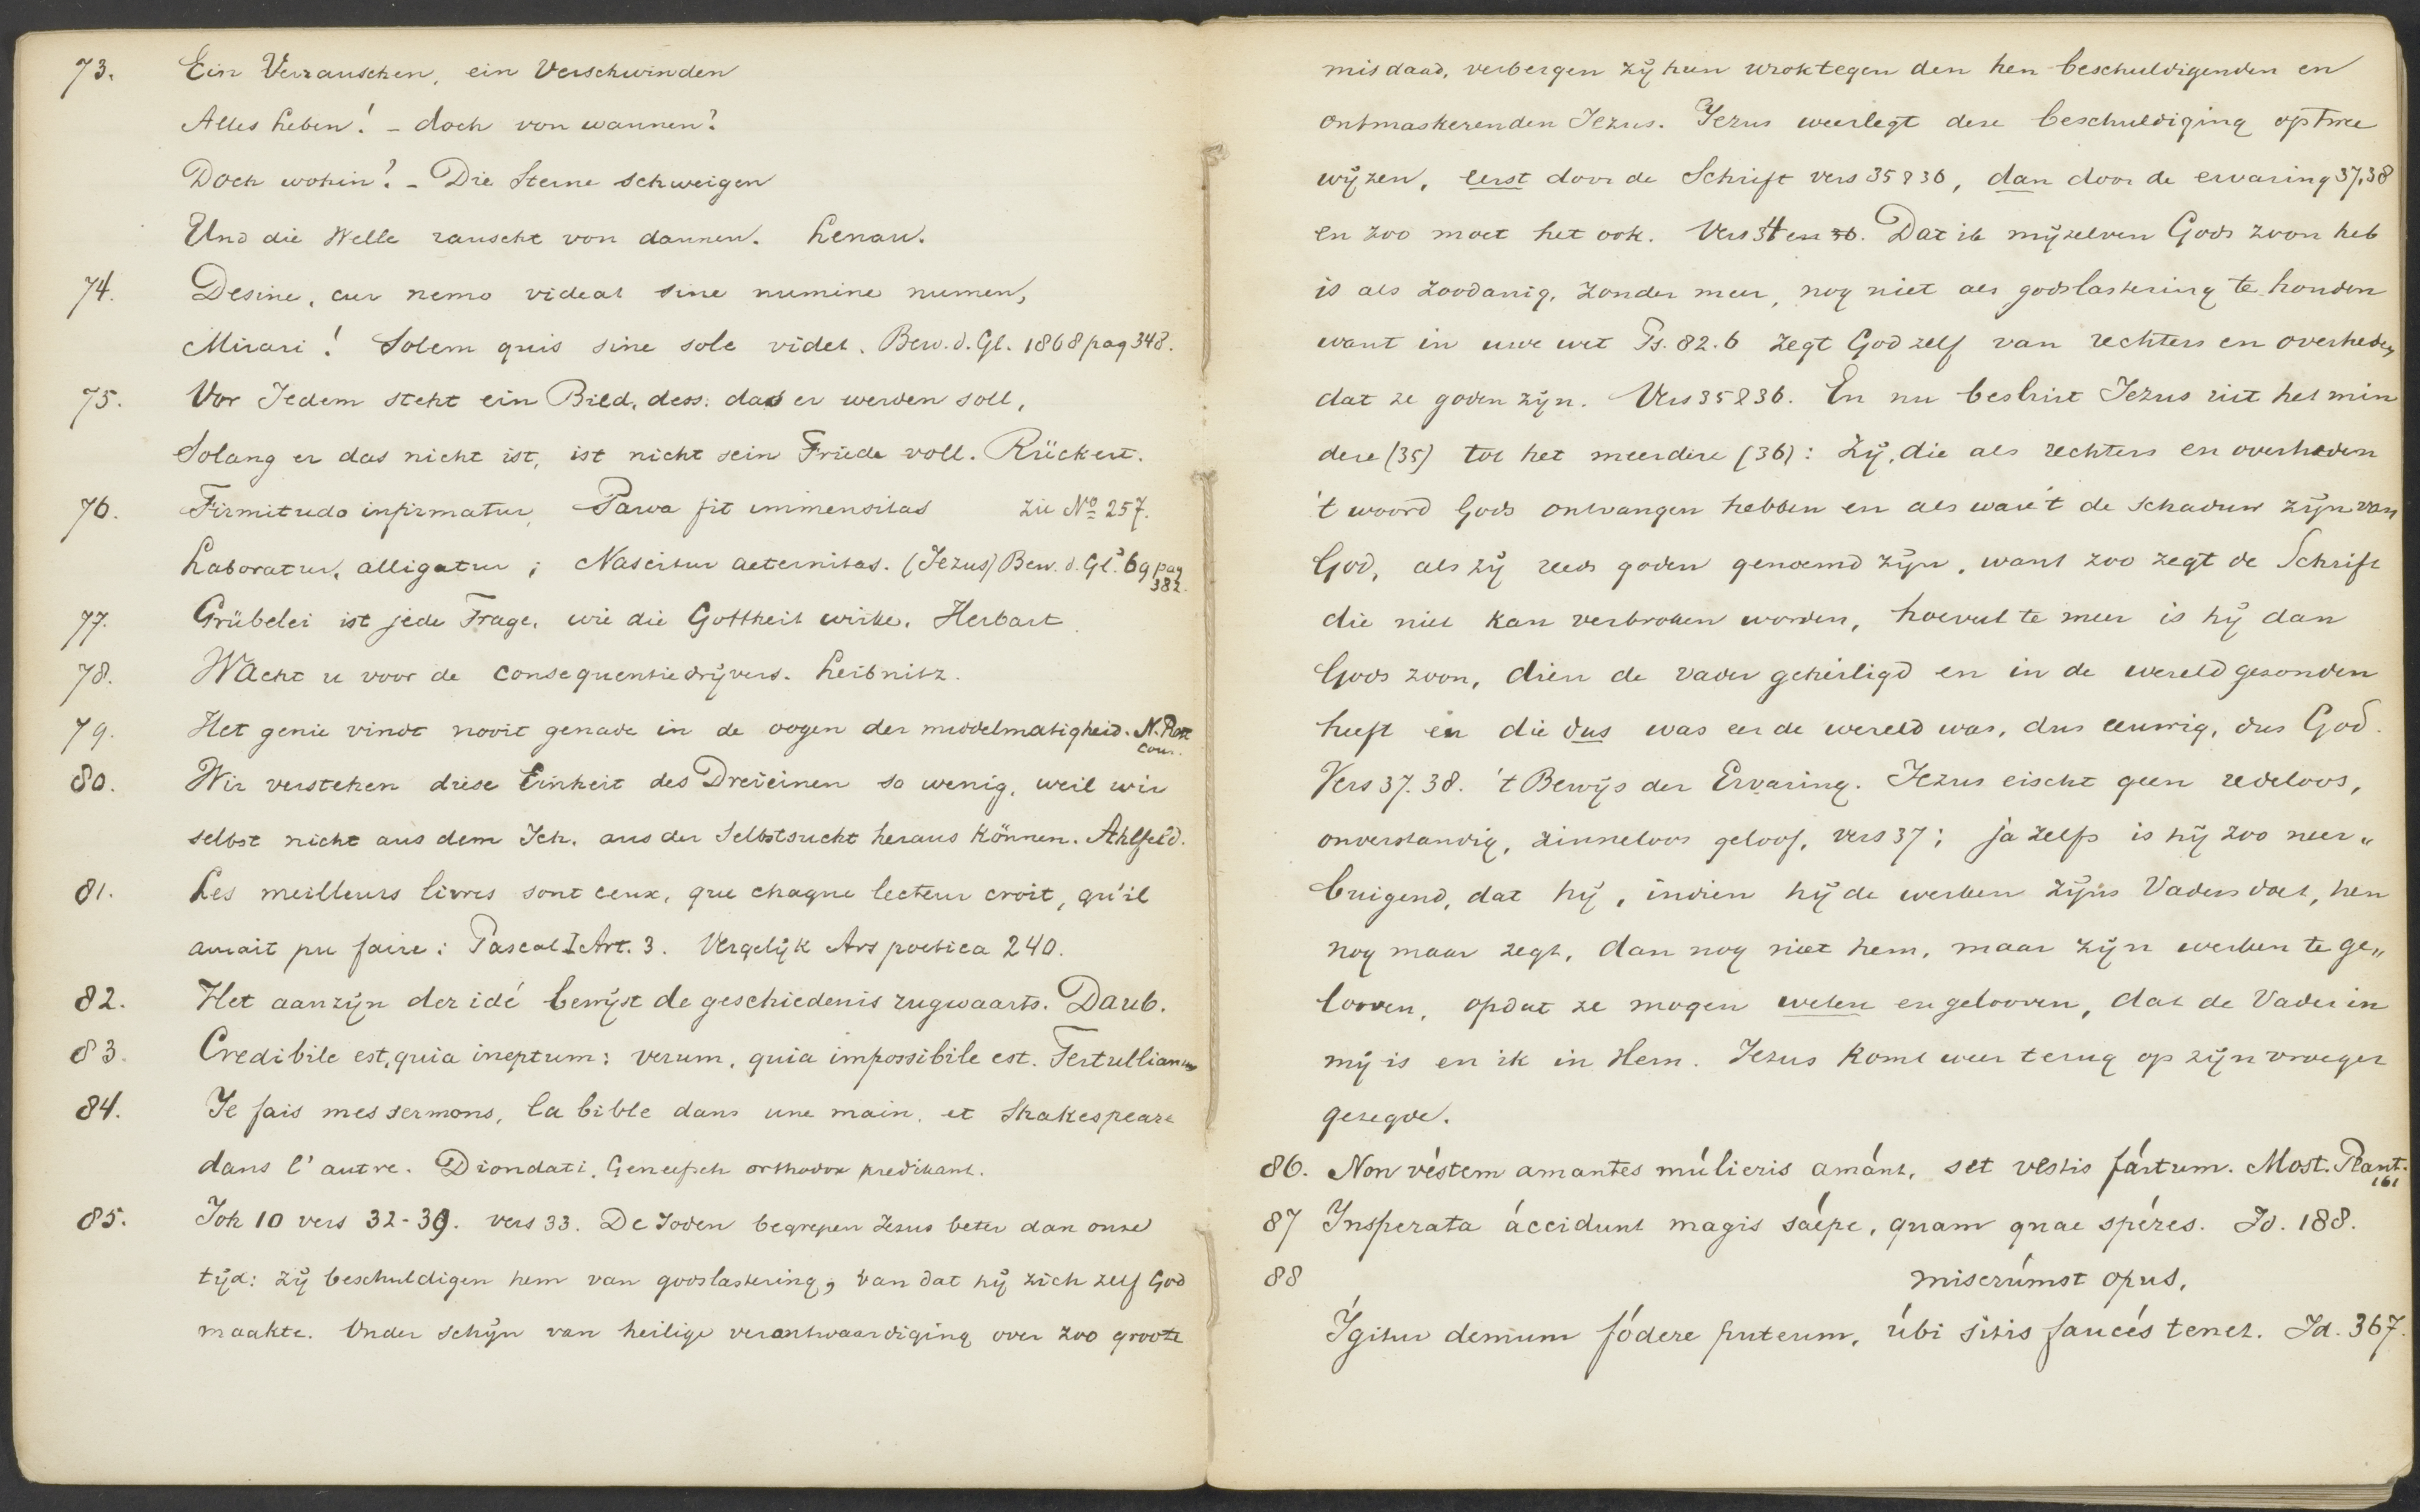 73. Ein Verrauschen, ein Verschwinden
Alles Leben! – doch von wannen?
Doch wohin? – Die Sterne schweigen
Und die Welle rauscht von dannen. Lenau.
74. Desine, cur nemo videat sine numine numen,
Mirari! Solem quis sine sole videt. Bew. d. Gl. 1868 pag 348.
75. Vor Jedem steht ein Bild, dess. das er werden soll,
Solang er das nicht ist, ist nicht sein Friede voll. Rückert.
76. Firmitudo infirmatur, Parva fit immensitas zie No 257.
Laboratur, alligatur; Nascitur aeternitas. (Jezus) Bew. d. Gl. 69 pag 382.
77. Grübelei ist jede Frage, wie die Gottheit wirke. Herbart.
78. Wacht u voor de consequentiedrijvers. Leibnitz.
79. Het genie vindt nooit genade in de oogen der middelmatigheid. N. Rott. Cour.
80. Wir verstehen diese Einheit des Dreieinen so wenig, weil wir
selbst nicht aus dem Ich, aus der Selbstsucht heraus können. Ahlfeld.
81. Les meilleurs livres sont ceux, que chaque lecteur croit, qu'il
aurait pu faire: Pascal I Art. 3. Vergelijk Ars poetica 240.
82. Het aanzijn der idé bewijst de geschiedenis rugwaarts. Daub.
83. Credibile est, quia ineptum: verum, quia impossibile est. Tertullianus
84. Je fais mes sermons, la bible dans une main, et Shakespeare
dans l'autre. Diondati, Geneefsch orthodox predikant.
85. Joh 10 vers 32-39. vers 33. De Joden begrepen Jezus beter dan onze
tijd: zij beschuldigen hem van godslastering, van dat hij zich zelf God
maakte. Onder schijn van heilige verontwaardiging over zoo groote
misdaad, verbergen zij hun wrok tegen den hen beschuldigenden en
ontmaskerenden Jezus. Jezus weerlegt deze beschuldiging op twee
wijzen, eerst door de Schrift vers 35 & 36, dan door de ervaring 37,38
en zoo moet het ook. Vers 34 en 36. Dat ik mijzelven Gods zoon heb
is als zoodanig, zonder meer, nog niet als godslastering te houden
want in uwe wet Ps. 82.6 zegt God zelf van rechters en overheden
dat ze goden zijn. Vers 35 & 36. En nu besluit Jezus uit het min
dere (35) tot het meerdere (36): Zij, die als rechters en overheden
't woord Gods ontvangen hebben en als ware't de schaduw zijn van
God, als zij reeds goden genoemd zijn, want zoo zegt de Schrift
die niet kan verbroken worden, hoeveel te meer is hij dan
Gods zoon, dien de vader geheiligd en in de wereld gezonden
heeft en die dus was eer de wereld was, dus eeuwig, dus God.
Vers 37. 38. 't Bewijs der Ervaring. Jezus eischt geen redeloos,
onverstandig, zinneloos geloof, vers 37; ja zelfs is hij zoo neer„
buigend, dat hij, indien hij de werken zijns Vaders doet, hen
nog maar zegt, dan nog niet hem, maar zijn werken te ge„
looven, opdat ze mogen weten en gelooven, dat de Vader in
mij is en ik in Hem. Jezus komt weer terug op zijn vroeger
gezegde.
86. Non véstem amantes múlieris amánt, set vestis fártum. Most. Plaut. 161
87 Insperata áccidunt magis saépe, quam quae spéres. Id. 188.
88 miserúmst opus,
Ígitur demum fódere puteum, úbi sitis faucés tenet. Id. 367.